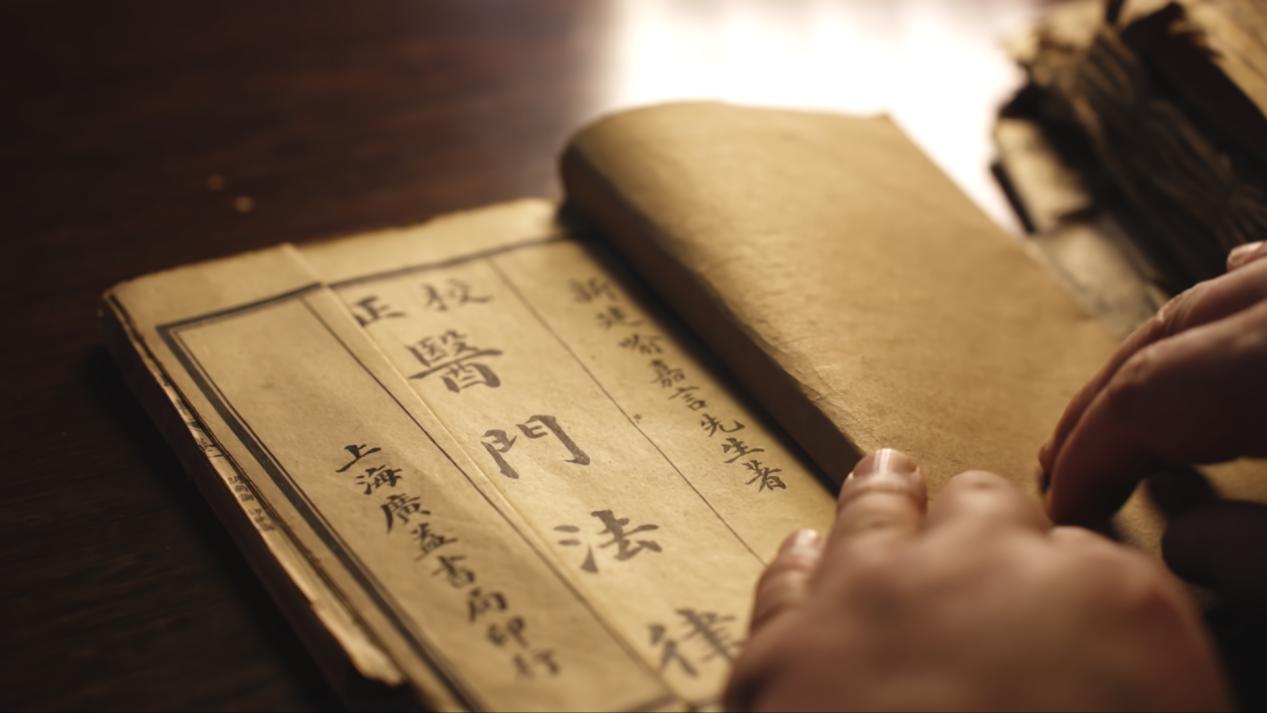 新建喻嘉言先生著
校正
醫門法律
上海廣益書局印行